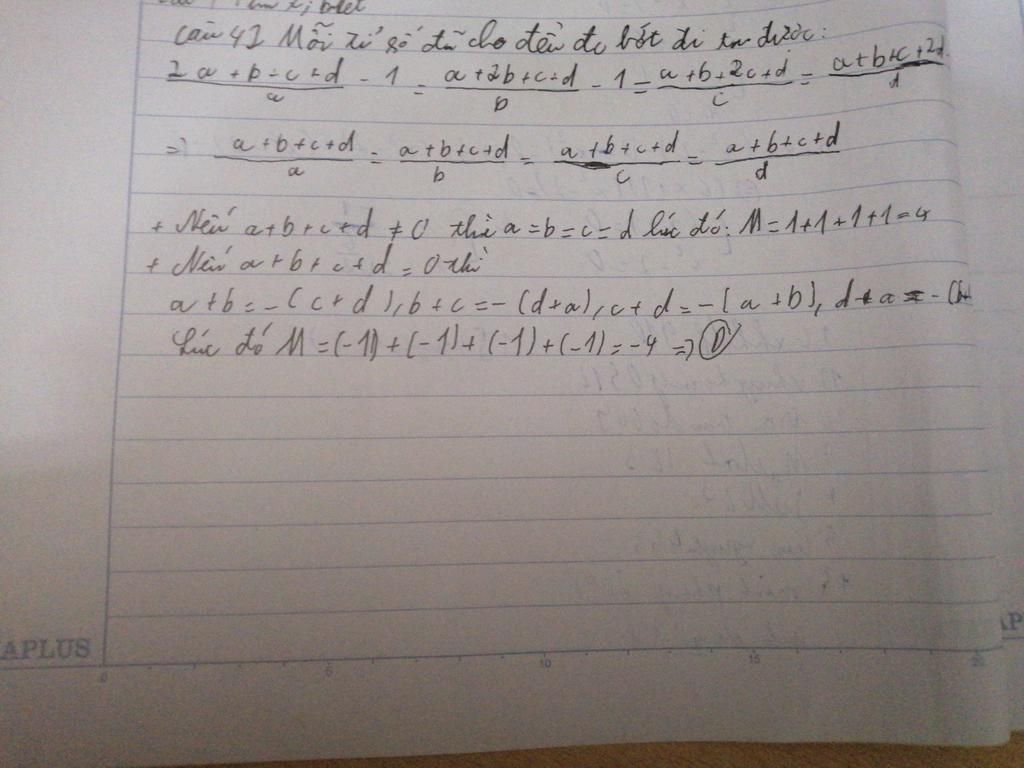 Câu 41 Mỗi tỉ số đã cho đều đc bớt đi ta được:
2a + b + c + d / a - 1 = a + 2b + c + d / b - 1 = a + b + 2c + d / c = a + b + c + 2d / d
=> a + b + c + d / a = a + b + c + d / b = a + b + c + d / c = a + b + c + d / d
+ Nếu a + b + c + d ≠ 0 thì a = b = c = d lúc đó: M = 1 + 1 + 1 + 1 = 4
+ Nếu a + b + c + d = 0 thì
a + b = - (c + d), b + c = - (d + a), c + d = - (a + b), d + a = - (b+
Lúc đó M = (-1) + (-1) + (-1) + (-1) = -4 => D
APLUS
0 5 10 15 20
AP